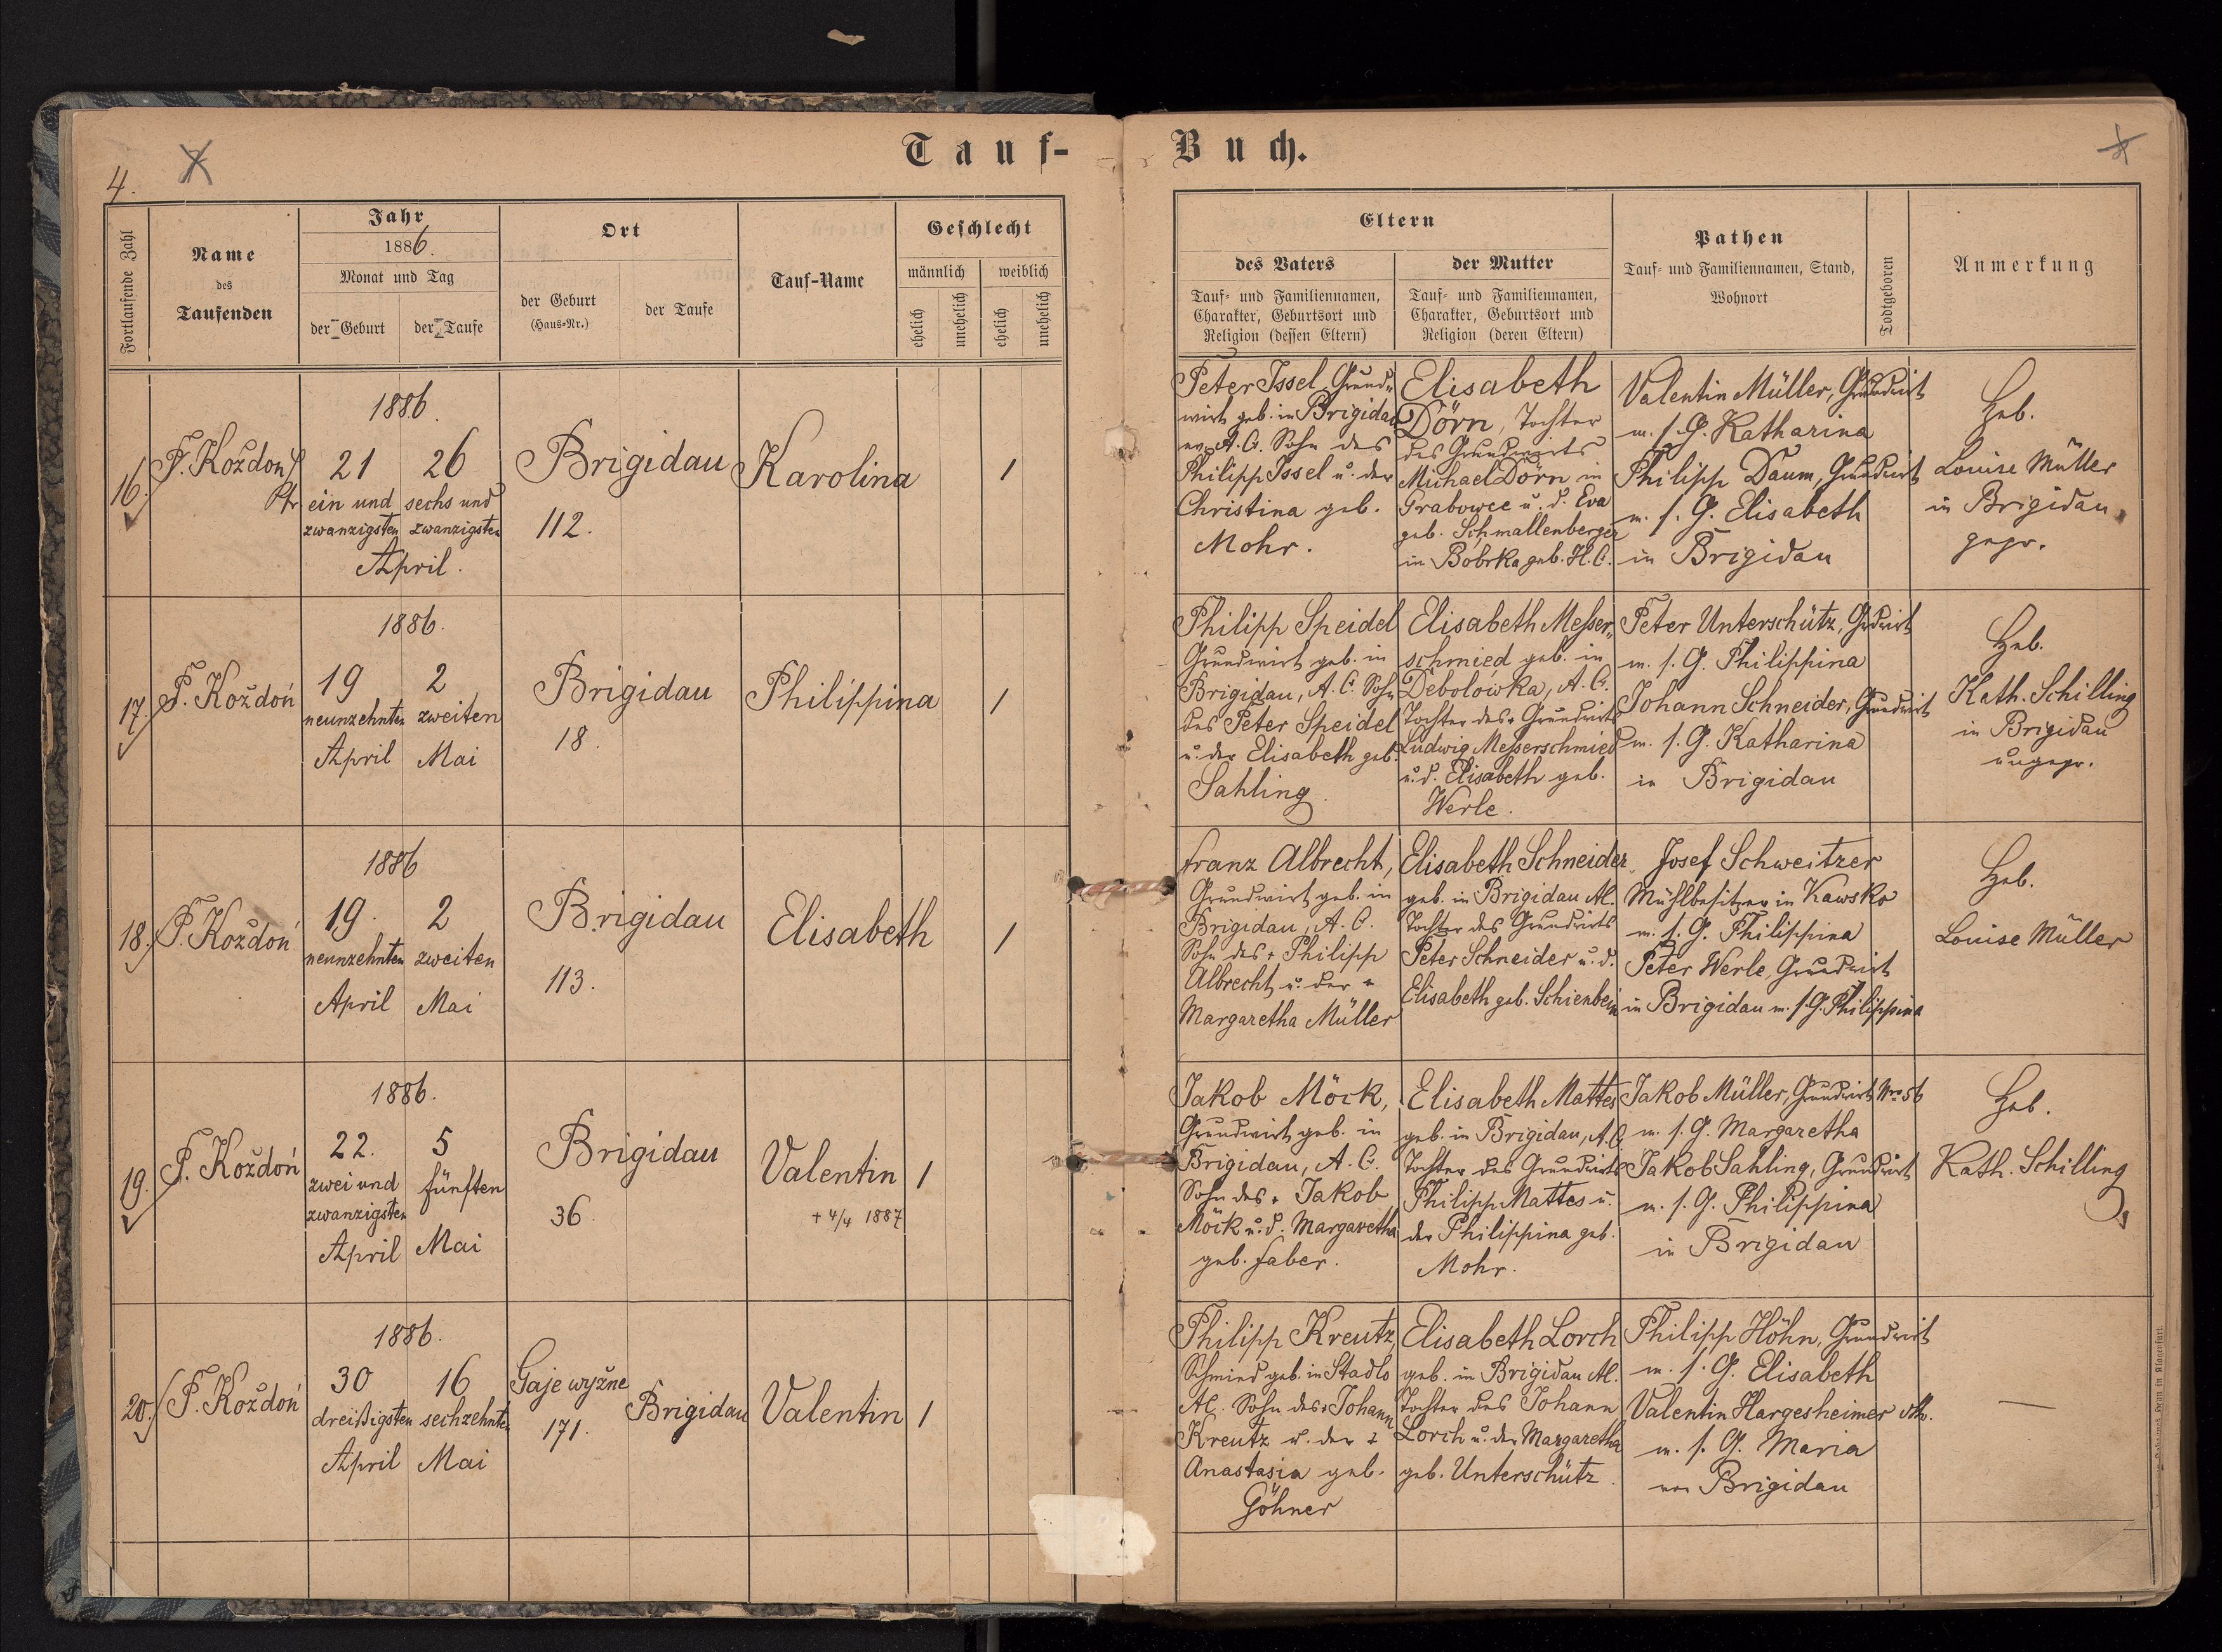 Tauf-Buch.
4.
Fortlaufende Zahl
Name
des
Taufenden
Jahr
1886.
Monat und Tag
der Geburt
der Taufe
Ort
der Geburt
(Haus-Nr.)
der Taufe
Tauf-Name
Geschlecht
männlich
weiblich
ehelich
unehelich
ehelich
unehelich
Eltern
des Vaters
Tauf- und Familiennamen,
Charakter, Geburtsort und
Religion (dessen Eltern)
der Mutter
Tauf- und Familiennamen,
Charakter, Geburtsort und
Religion (deren Eltern)
Pathen
Tauf- und Familiennamen, Stand,
Wohnort
Todtgeboren
Anmerkung
16.
F. Koždoń
Pfr
1886.
21
ein und
zwanzigsten
26
sechs und
zwanzigsten
April.
Brigidau
112.
Karolina
1
Peter Issel, Grund-
wirt geb. in Brigidau
ev. A. C. Sohn des
Philipp Issel u. der
Christina geb.
Mohr.
Elisabeth
Dörn, Tochter
des Grundwirts
Michael Dörn in
Grabowce u. d. Eva
geb. Schmallenberger
in Bobrka geb. H. C.
Valentin Müller, Grundwirt
m. s. G. Katharina
Philipp Daum, Grundwirt
m. s. G. Elisabeth
in Brigidau
Heb.
Louise Müller
in Brigidau
gepr.
17.
F. Koždoń
1886.
19
neunzehnten
April
2
zweiten
Mai
Brigidau
18.
Philippina
1
Philipp Speidel
Grundwirt geb. in
Brigidau, A. C. Sohn
des Peter Speidel
u. der Elisabeth geb.
Sahling.
Elisabeth Messer-
schmied geb. in
Debolówka, A. C.
Tochter des + Grundwirts
Ludwig Messerschmied
u. d. Elisabeth geb.
Werle.
Peter Unterschütz, Grdwirt
m. s. G. Philippina
Johann Schneider, Grundwirt
m. s. G. Katharina
in Brigidau
Heb.
Kath. Schilling
in Brigidau
ungepr.
18.
F. Koždoń
1886
19.
neunzehnten
April
2
zweiten
Mai
Brigidau
113.
Elisabeth
1
Franz Albrecht,
Grundwirt geb. in
Brigidau, A. C.
Sohn des + Philipp
Albrecht u. der +
Margaretha Müller
Elisabeth Schneider,
geb. in Brigidau AC.
Tochter des Grundwirts
Peter Schneider u. d.
Elisabeth geb. Schienbein
Josef Schweitzer
Mühlbesitzer in Kawsko
m. s. G. Philippina
Peter Werle, Grundwirt
in Brigidau m. s. G. Philippina
Heb.
Louise Müller
19.
F. Koždoń
1886.
22.
zwei und
zwanzigsten
April
5
fünften
Mai
Brigidau
36.
Valentin
+ 4/4 1887
1
Jakob Möck,
Grundwirt geb. in
Brigidau, A. C.
Sohn des + Jakob
Möck u. d. Margaretha
geb. Faber.
Elisabeth Mattes
geb. in Brigidau, A. C.
Tochter des Grundwirts
Philipp Mattes u.
der Philippina geb.
Mohr.
Jakob Müller, Grundwirt Nro 56
m. s. G. Margaretha
Jakob Sahling, Grundwirt
m. s. G. Philippina
in Brigidau
Heb.
Kath. Schilling
20.
F. Koždoń
1886.
30
dreißigsten
April
16
sechzehnten
Mai
Gaje wyžne
171.
Brigidau
Valentin
1
Philipp Kreutz,
Schmied geb. in Stadlo
AC. Sohn des + Johann
Kreutz u. der +
Anastasia geb.
Göhner
Elisabeth Lorch
geb. in Brigidau AC.
Tochter des Johann
Lorch u. der Margaretha
geb. Unterschütz.
Philipp Höhn, Grundwirt
m. s. G. Elisabeth
Valentin Hargesheimer
m. s. G. Maria
von Brigidau
—